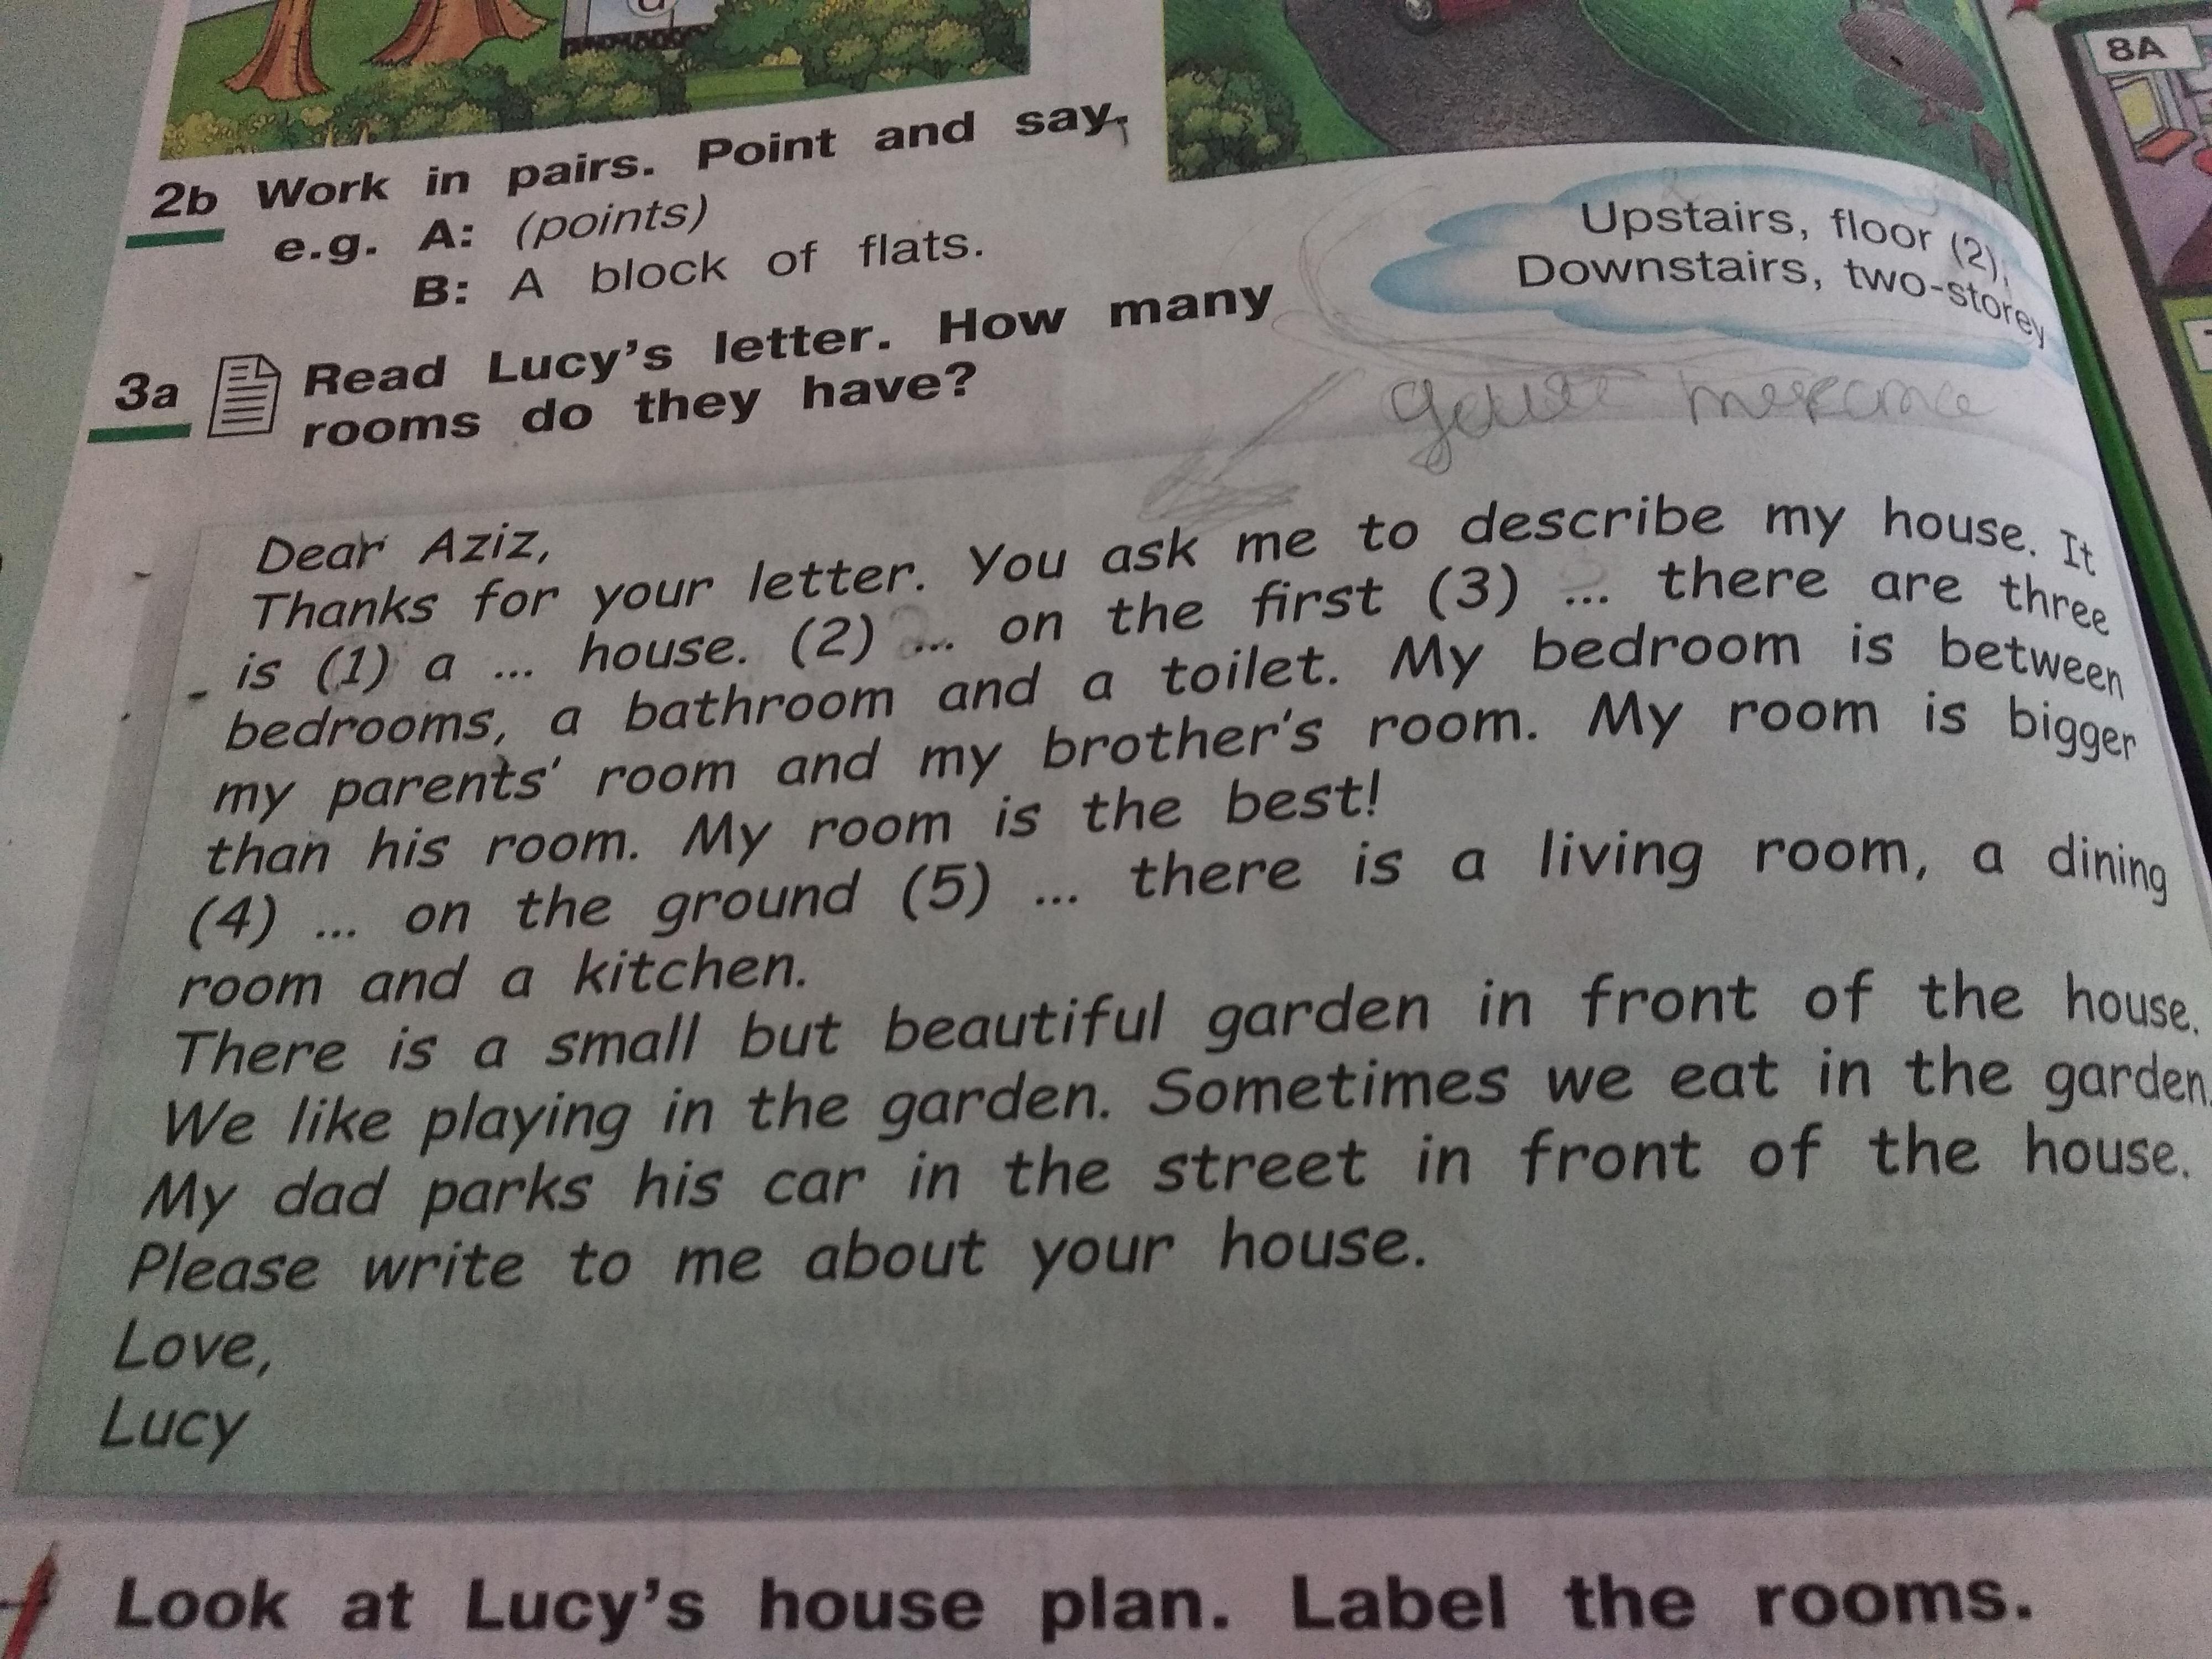 d
8A
2b Work in pairs. Point and say.
e.g. A: (points)
B: A block of flats.
Upstairs, floor (2),
Downstairs, two-storey
3a Read Lucy's letter. How many
rooms do they have?
Dear Aziz,
Thanks for your letter. You ask me to describe my house. It
is (1) a ... house. (2) ... on the first (3) ... there are three
bedrooms, a bathroom and a toilet. My bedroom is between
my parents' room and my brother's room. My room is bigger
than his room. My room is the best!
(4) ... on the ground (5) ... there is a living room, a dining
room and a kitchen.
There is a small but beautiful garden in front of the house.
We like playing in the garden. Sometimes we eat in the garden.
My dad parks his car in the street in front of the house.
Please write to me about your house.
Love,
Lucy
Look at Lucy's house plan. Label the rooms.